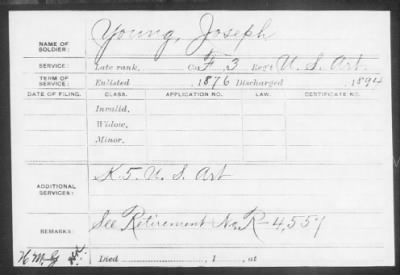 NAME OF SOLDIER: Young, Joseph
SERVICE: Late rank, Co. F. 3 Reg't U. S. Art.
TERM OF SERVICE: Enlisted , 1876 Discharged , 1894
DATE OF FILING. CLASS. APPLICATION NO. LAW. CERTIFICATE NO.
Invalid,
Widow,
Minor,
ADDITIONAL SERVICES: K. 5. U. S. Art
REMARKS: See Retirement No. R-4,557
Died , 1 , at